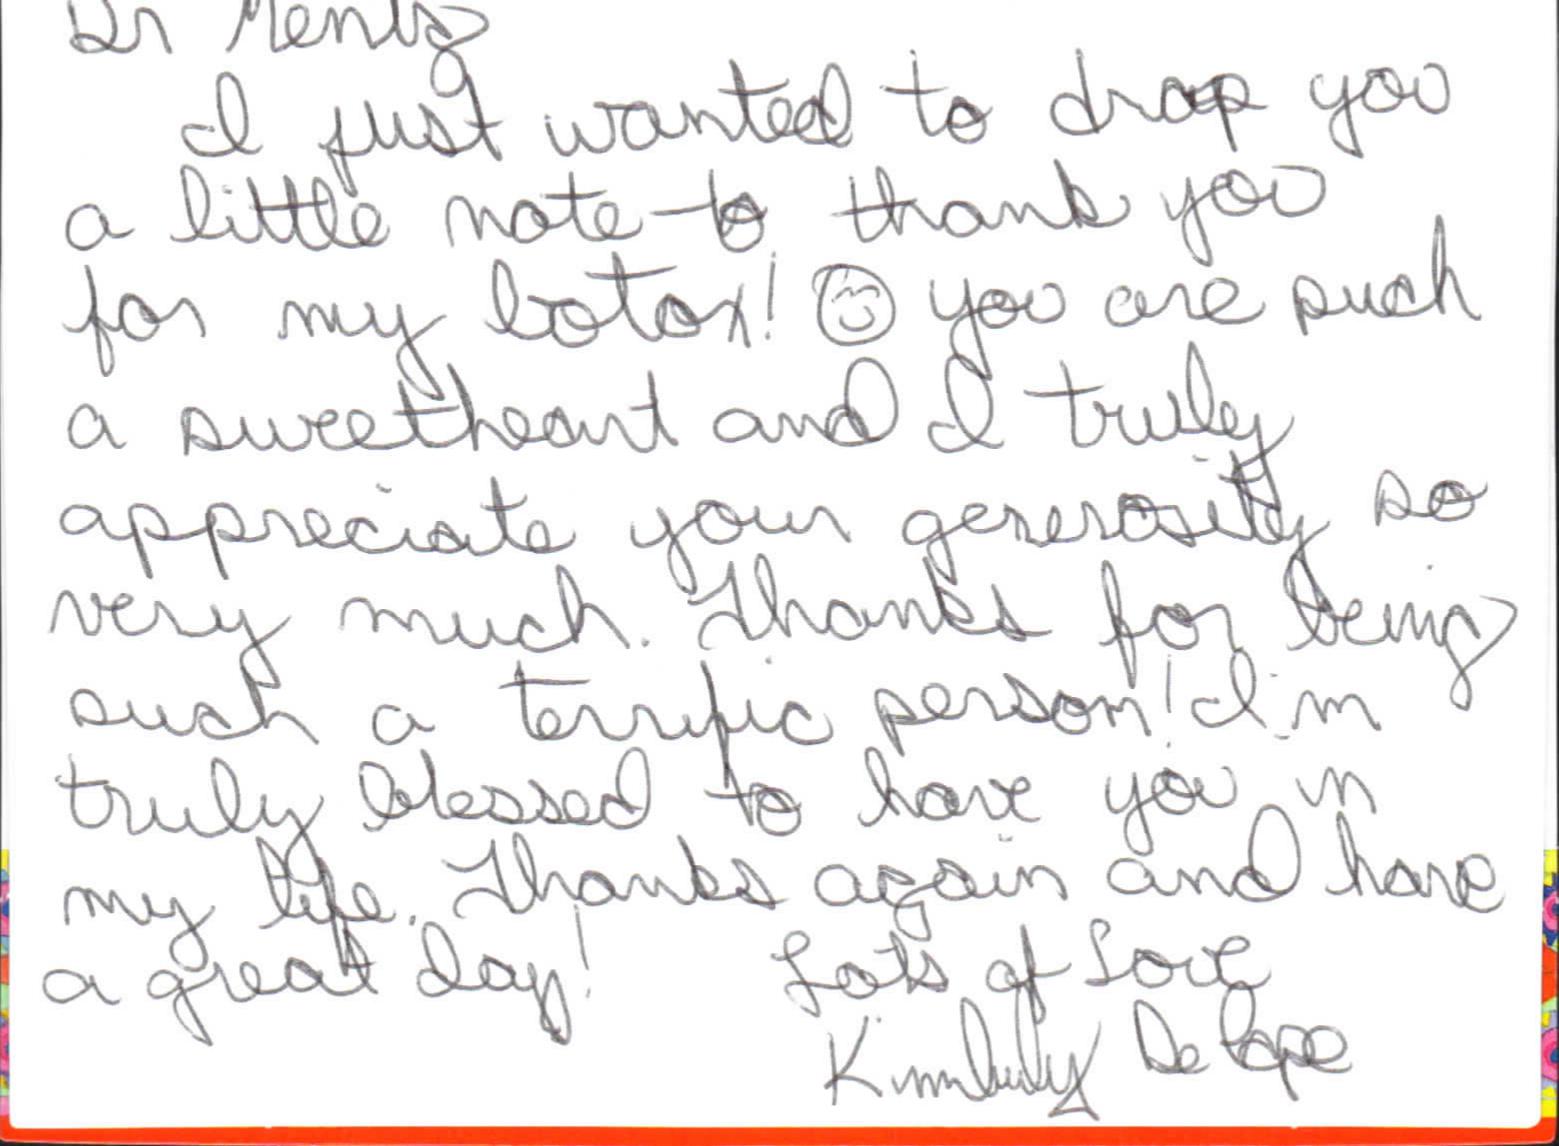 Dr Mentz
I just wanted to drop you
a little note to thank you
for my botox! you are such
a sweetheart and I truly
appreciate your generosity so
very much. Thanks for being
such a terrific person! I'm
truly blessed to have you in
my life. Thanks again and have
a great day! Lots of Love
Kimberly De Pape